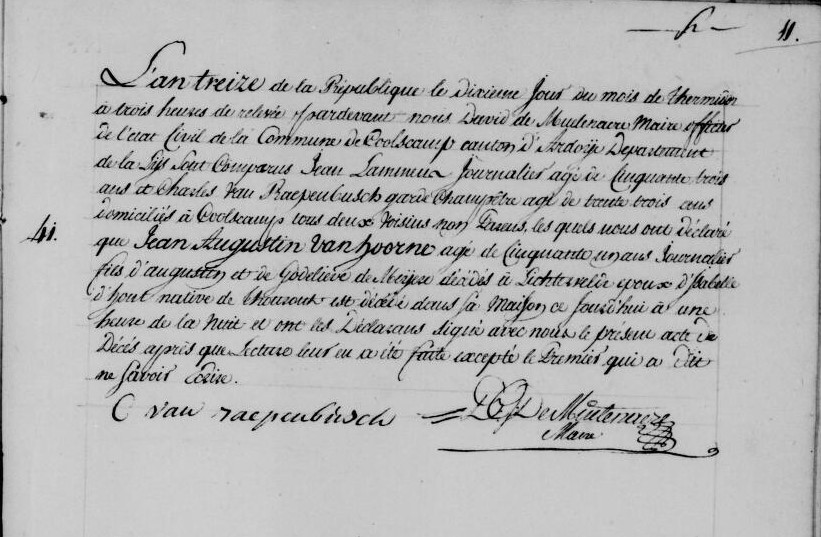 h
11.
L'an treize de la République le dixieme Jour du mois de thermidor
à trois heures de relevée pardevant nous David de Muelenaere Maire officier
de l'état Civil de la Commune de Coolscamp canton d'Ardoÿe Departement
de la Lÿs sont Comparus Jean Lammens Journalier agé de Cinquante trois
ans et Charles Van Raepenbusch garde Champêtre agé de trente trois ans
domiciliés à Coolscamp tous deux Voisins non Parens, les quels nous ont déclaré
41.
que Jean Augustin Vanhoorne agé de Cinquante un ans Journalier
fils d'augustin et de Godelieve de Meÿere décédés à Lichtervelde epoux d'Isabelle
d'hont native de thourout est décédé dans sa Maison ce jourd'hui à une
heure de la Nuit et ont les Déclarans signé avec nous le présent acte de
Décés après que Lecture leur en a été faite excepté le Premier qui a dit
ne savoir Ecrire.
C van raepenbusch De Muelenaere
Maire